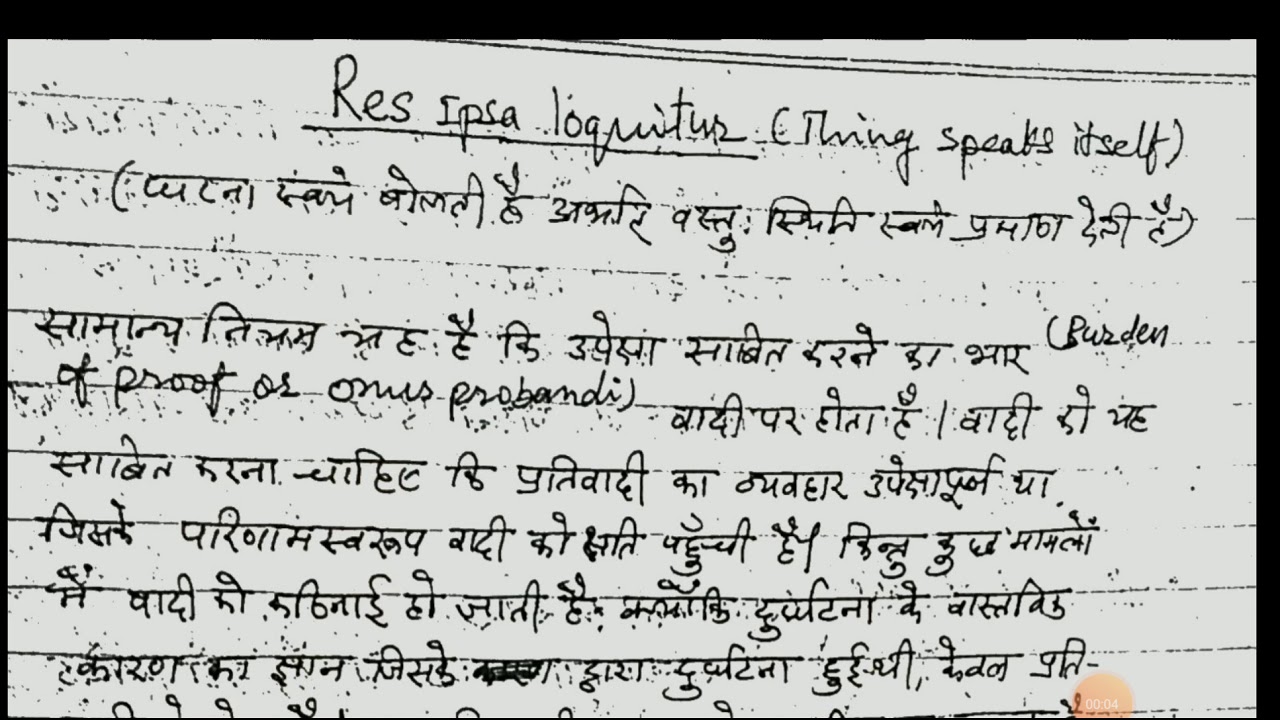 Res Ipsa loquitur (Thing speaks itself)
(घटना स्वयं बोलती है अर्थात वस्तु स्थिति स्वयं प्रमाण देती है)
सामान्य नियम यह है कि उपेक्षा साबित करने का भार (Burden
of proof or onus probandi) वादी पर होता है। वादी को यह
साबित करना चाहिए कि प्रतिवादी का व्यवहार उपेक्षापूर्ण था
जिसके परिणामस्वरूप वादी को क्षति पहुँची है। किन्तु कुछ मामलों
में वादी को कठिनाई हो जाती है क्योंकि दुर्घटना के वास्तविक
कारण का ज्ञान जिसके द्वारा दुर्घटना हुई थी, केवल प्रति-
00:04